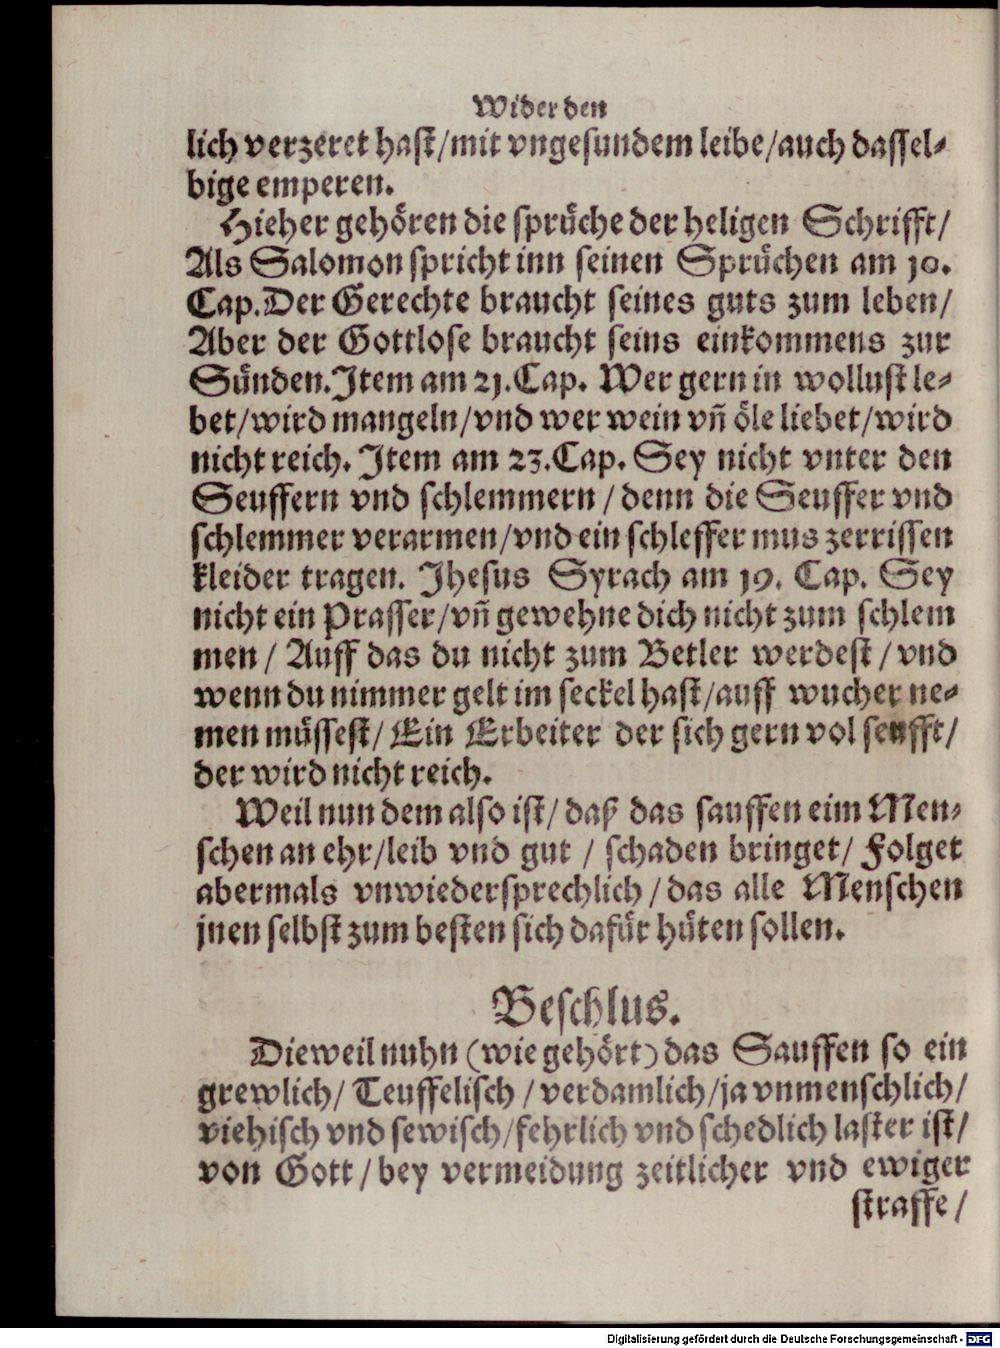 Wider den
lich verzeret hast/mit vngesundem leibe/auch dassel-
bige emperen.
Hieher gehören die sprüche der heligen Schrifft/
Als Salomon spricht inn seinen Sprüchen am 10.
Cap.Der Gerechte braucht seines guts zum leben/
Aber der Gottlose braucht seins einkommens zur
Sünden.Item am 21.Cap. Wer gern in wollust le-
bet/wird mangeln/vnd wer wein vñ öle liebet/wird
nicht reich. Item am 23.Cap. Sey nicht vnter den
Seuffern vnd schlemmern / denn die Seuffer vnd
schlemmer verarmen/vnd ein schleffer mus zerrissen
kleider tragen. Jhesus Syrach am 19. Cap. Sey
nicht ein Prasser/vñ gewehne dich nicht zum schlem
men / Auff das du nicht zum Betler werdest / vnd
wenn du nimmer gelt im seckel hast/auff wucher ne-
men müssest/ Ein Erbeiter der sich gern vol seufft/
der wird nicht reich.
Weil nun dem also ist/ daß das sauffen eim Men-
schen an ehr/leib vnd gut / schaden bringet/ Folget
abermals vnwiedersprechlich / das alle Menschen
jnen selbst zum besten sich dafür hüten sollen.
Beschlus.
Dieweil nuhn (wie gehört) das Sauffen so ein
grewlich/ Teuffelisch / verdamlich/ja vnmenschlich/
viehisch vnd sewisch/fehrlich vnd schedlich laster ist/
von Gott / bey vermeidung zeitlicher vnd ewiger
straffe /
Digitalisierung gefördert durch die Deutsche Forschungsgemeinschaft - DFG